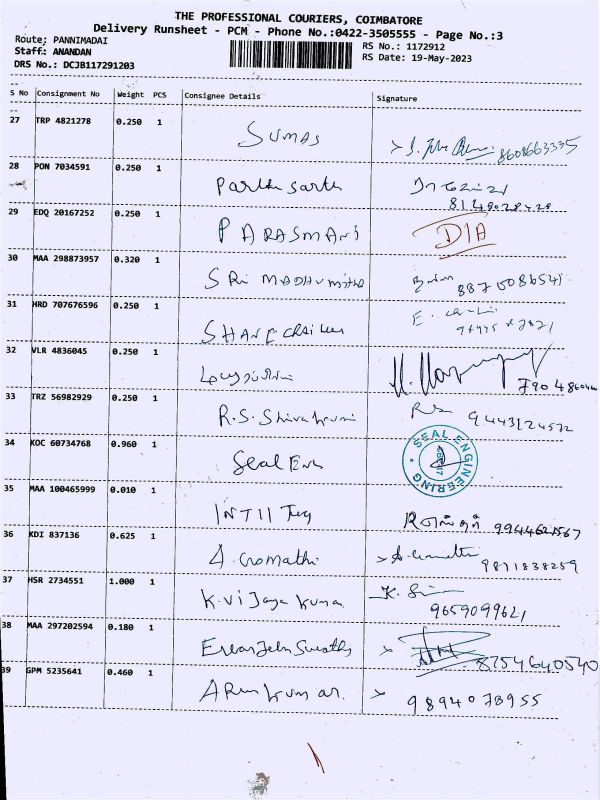 THE PROFESSIONAL COURIERS, COIMBATORE
Delivery Runsheet - PCM - Phone No.:0422-3505555 - Page No.:3
Route: PANNIMADAI
RS No.: 1172912
Staff: ANANDAN
RS Date: 19-May-2023
DRS No.: DCJB117291203
S No Consignment No Weight PCS Consignee Details Signature
27 TRP 4821278 0.250 1
SUMAS 8608663335
28 PON 7034591 0.250 1
Parthi sarthi
29 EDQ 20167252 0.250 1
PARASMANI D/A
30 MAA 298873957 0.320 1
SRi MADHUmitha
31 HRD 707676596 0.250 1
32 VLR 4836045 0.250 1
33 TRZ 56982929 0.250 1
R.S. Shivakumi 9443124572
34 KOC 60734768 0.960 1
Seal Eng
SEAL ENGINEERING
35 MAA 100465999 0.010 1
36 KDI 837136 0.625 1
A. Gomathi 9811838259
37 HSR 2734551 1.000 1
K. Vijaya kuma K.
9659099621
38 MAA 297202594 0.180 1
8754640540
39 GPM 5235641 0.460 1
ARun kumar. 9894073955